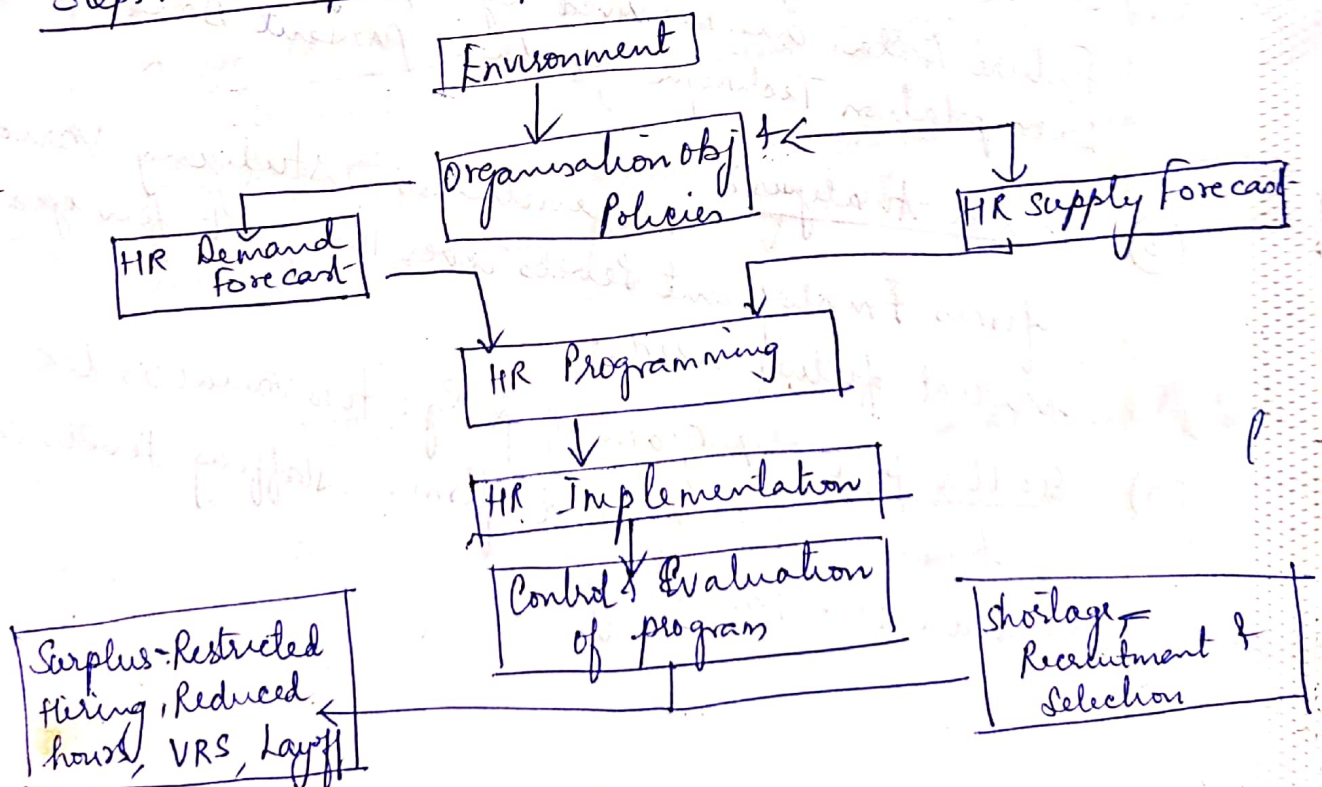 Steps
Environment
Organisation obj &
Policies
HR Supply Forecast
HR Demand
Forecast
HR Programming
HR Implementation
Control & Evaluation
of program
Surplus-Restricted
Hiring, Reduced
hours, VRS, Layoff
Shortage-
Recruitment &
Selection